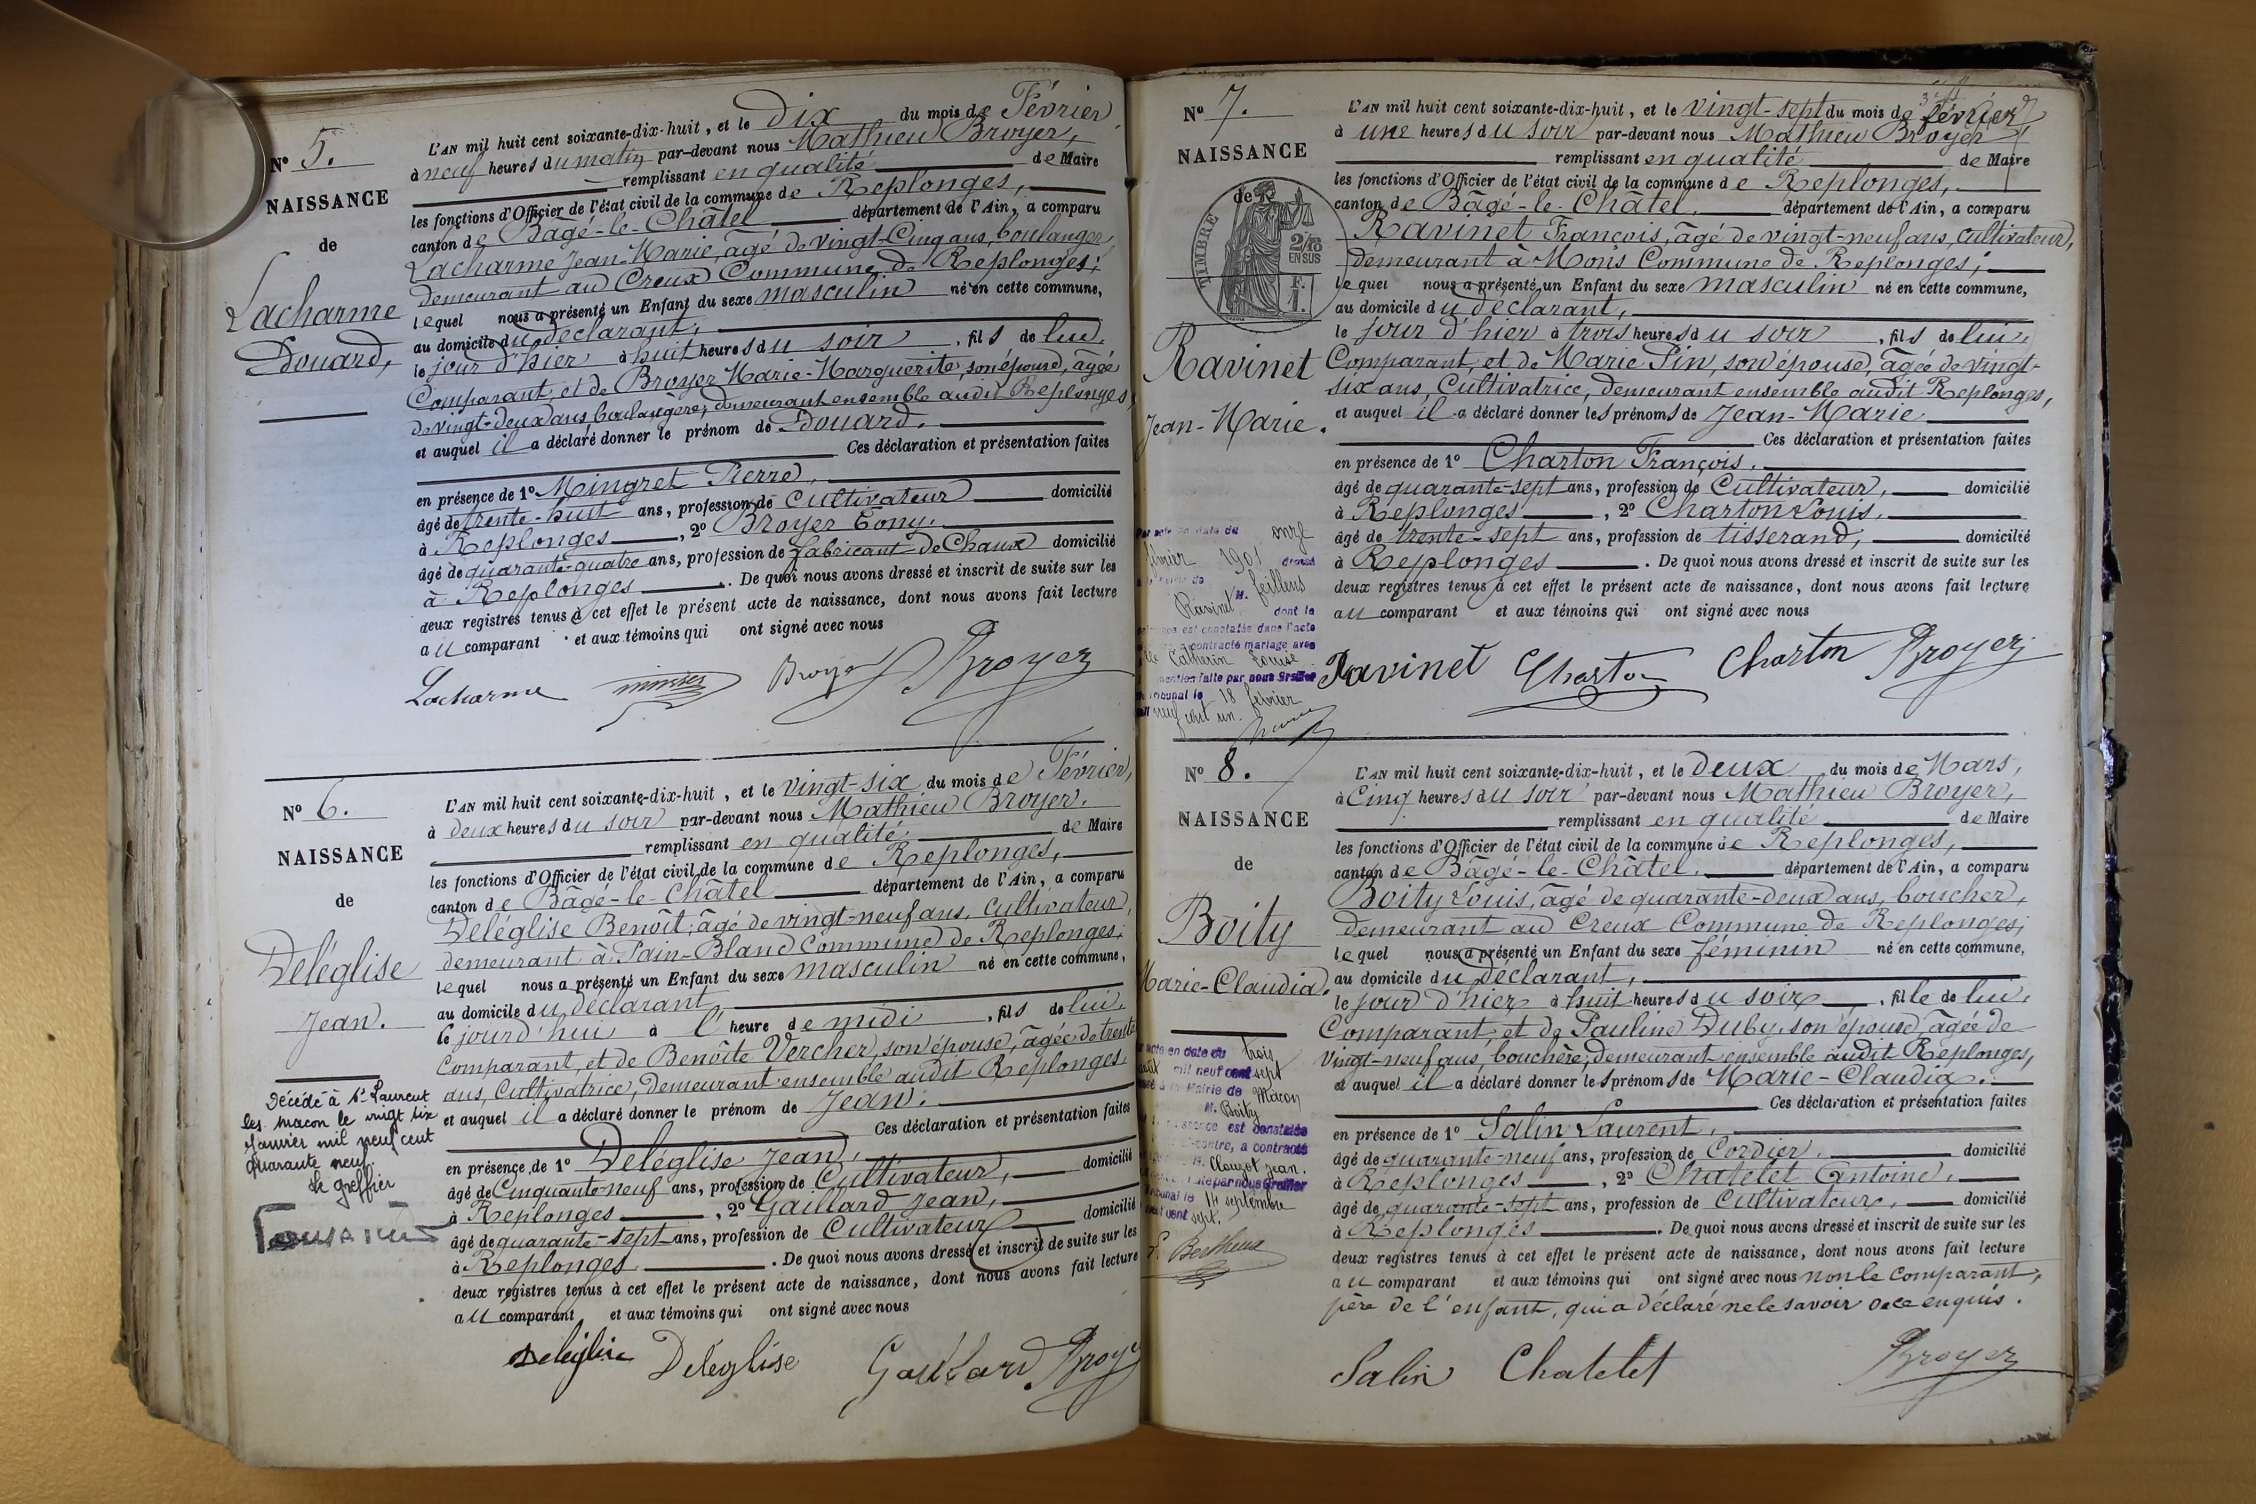 N° 5.
NAISSANCE
de
Lacharme
Douard,
L'AN mil huit cent soixante-dix-huit, et le Dix du mois de Février
à neuf heures du matin par-devant nous Mathieu Broyer,
remplissant en qualité de Maire
les fonctions d'Officier de l'état civil de la commune de Replonges,
canton de Bâgé-le-Châtel département de l'Ain, a comparu
Lacharme Jean-Marie, âgé de vingt-Cinq ans, boulanger,
demeurant au Creux Commune de Replonges;
lequel nous a présenté un Enfant du sexe masculin né en cette commune,
au domicile du déclarant,
le jour d'hier à huit heures du soir, fils de lui,
Comparant, et de Broyer Marie-Marguerite, son épouse, âgée
de vingt-deux ans, boulangère, demeurant ensemble audit Replonges,
et auquel il a déclaré donner le prénom de Douard.
Ces déclaration et présentation faites
en présence de 1° Mingret Pierre,
âgé de trente-huit ans, profession de Cultivateur domicilié
à Replonges, 2° Broyer Tony.
âgé de quarante-quatre ans, profession de fabricant de Chaux domicilié
à Replonges. De quoi nous avons dressé et inscrit de suite sur les
deux registres tenus à cet effet le présent acte de naissance, dont nous avons fait lecture
au comparant et aux témoins qui ont signé avec nous
Lacharme Broyer Broyer
N° 6.
NAISSANCE
de
Deléglise
Jean.
Décédé à St Laurent
les macon le vingt six
Janvier mil neuf cent
quarante neuf
Le greffier
L'AN mil huit cent soixante-dix-huit, et le vingt-six du mois de Février,
à deux heures du soir par-devant nous Mathieu Broyer.
remplissant en qualité de Maire
les fonctions d'Officier de l'état civil de la commune de Replonges,
canton de Bâgé-le-Châtel département de l'Ain, a comparu
Deléglise Benoît; âgé de vingt-neuf ans, Cultivateur,
demeurant à Pain-Blanc Commune de Replonges;
lequel nous a présenté un Enfant du sexe masculin né en cette commune,
au domicile du déclarant
le jourd'hui à l'heure de midi, fils de lui,
Comparant, et de Benôite Vercher, son épouse, âgée de trente
ans, Cultivatrice, demeurant ensemble audit Replonges
et auquel il a déclaré donner le prénom de Jean.
Ces déclaration et présentation faites
en présence de 1° Deléglise Jean,
âgé de Cinquante-neuf ans, profession de Cultivateur, domicilié
à Replonges, 2° Gaillard Jean,
âgé de quarante-sept ans, profession de Cultivateur domicilié
à Replonges. De quoi nous avons dressé et inscrit de suite sur les
deux registres tenus à cet effet le présent acte de naissance, dont nous avons fait lecture
au comparant et aux témoins qui ont signé avec nous
Deléglise Deléglise Gaillard Broyer
N° 7.
NAISSANCE
de
TIMBRE
2/10
EN SUS
F.
1.
Ravinet
Jean-Marie.
Par acte en date du onze
février 1901 dressé
Mairie de feillens
M. Ravinet dont la
naissance est constatée dans l'acte
contracté mariage avec
Catherin Louise
mention faite par nous Greffier
Tribunal le 18 février
neuf cent un.
L'AN mil huit cent soixante-dix-huit, et le vingt-sept du mois de février
à une heures du soir par-devant nous Mathieu Broyer
remplissant en qualité de Maire
les fonctions d'Officier de l'état civil de la commune de Replonges,
canton de Bâgé-le-Châtel, département de l'Ain, a comparu
Ravinet François, âgé de vingt-neuf ans, Cultivateur,
demeurant à Mons Commune de Replonges;
lequel nous a présenté un Enfant du sexe masculin né en cette commune,
au domicile du déclarant,
le jour d'hier à trois heures du soir, fils de lui,
Comparant, et de Marie Pin, son épouse, âgée de vingt-
six ans, Cultivatrice, demeurant ensemble audit Replonges,
et auquel il a déclaré donner les prénoms de Jean-Marie
Ces déclaration et présentation faites
en présence de 1° Charton François.
âgé de quarante-sept ans, profession de Cultivateur, domicilié
à Replonges, 2° Charton Louis,
âgé de trente-sept ans, profession de tisserand, domicilié
à Replonges. De quoi nous avons dressé et inscrit de suite sur les
deux registres tenus à cet effet le présent acte de naissance, dont nous avons fait lecture
au comparant et aux témoins qui ont signé avec nous
Ravinet Charton Charton Broyer
N° 8.
NAISSANCE
de
Boity
Marie-Claudia.
acte en date du trois
mil neuf cent sept
Mairie de Macon
M. Boity
naissance est constatée
ci-contre, a contracté
M. Clouzot Jean.
faite par nous Greffier
Tribunal le 14 septembre
neuf cent sept.
L'AN mil huit cent soixante-dix-huit, et le Deux du mois de Mars,
à Cinq heures du soir par-devant nous Mathieu Broyer,
remplissant en qualité de Maire
les fonctions d'Officier de l'état civil de la commune de Replonges,
canton de Bâgé-le-Châtel, département de l'Ain, a comparu
Boity Louis, âgé de quarante-deux ans, boucher,
demeurant au Creux Commune de Replonges;
lequel nous a présenté un Enfant du sexe féminin né en cette commune,
au domicile du déclarant,
le jour d'hier à huit heures du soir, fille de lui,
Comparant, et de Pauline Duby, son épouse, âgée de
vingt-neuf ans, bouchère, demeurant ensemble audit Replonges,
et auquel il a déclaré donner les prénoms de Marie-Claudia.
Ces déclaration et présentation faites
en présence de 1° Salin Laurent,
âgé de quarante-neuf ans, profession de Cordier, domicilié
à Replonges, 2° Chatelet Antoine,
âgé de quarante-sept ans, profession de Cultivateur, domicilié
à Replonges. De quoi nous avons dressé et inscrit de suite sur les
deux registres tenus à cet effet le présent acte de naissance, dont nous avons fait lecture
au comparant et aux témoins qui ont signé avec nous non le Comparant,
père de l'enfant, qui a déclaré ne le savoir de ce enquis.
Salin Chatelet Broyer